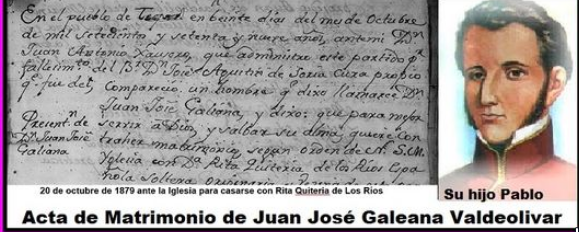 En el pueblo de Tecpan en beinte dias del mes de Octubre
de mil setecientos y setenta y nueve años, antemi Dⁿ
Juan Antonio que administra este partido pʳ
fallecimᵗᵒ del Bʳ Dⁿ Jose Agustin de Soria Cura propio
qᵉ fue del, comparecio un hombre qᵉ dixo llamarce Dⁿ
Juan José Galiana, y dixo: que para mejor
Presentⁿ de servir a Dios, y salbar su alma, quiere con
Dⁿ Juan José traher matrimonio, segun orden de N. S. M.
Galiana Yglesia con Dᵃ Rita Quiteria de los Rios Espa
nola Soltera originaria y
20 de octubre de 1879 ante la Iglesia para casarse con Rita Quiteria de Los Ríos
Su hijo Pablo
Acta de Matrimonio de Juan José Galeana Valdeolivar